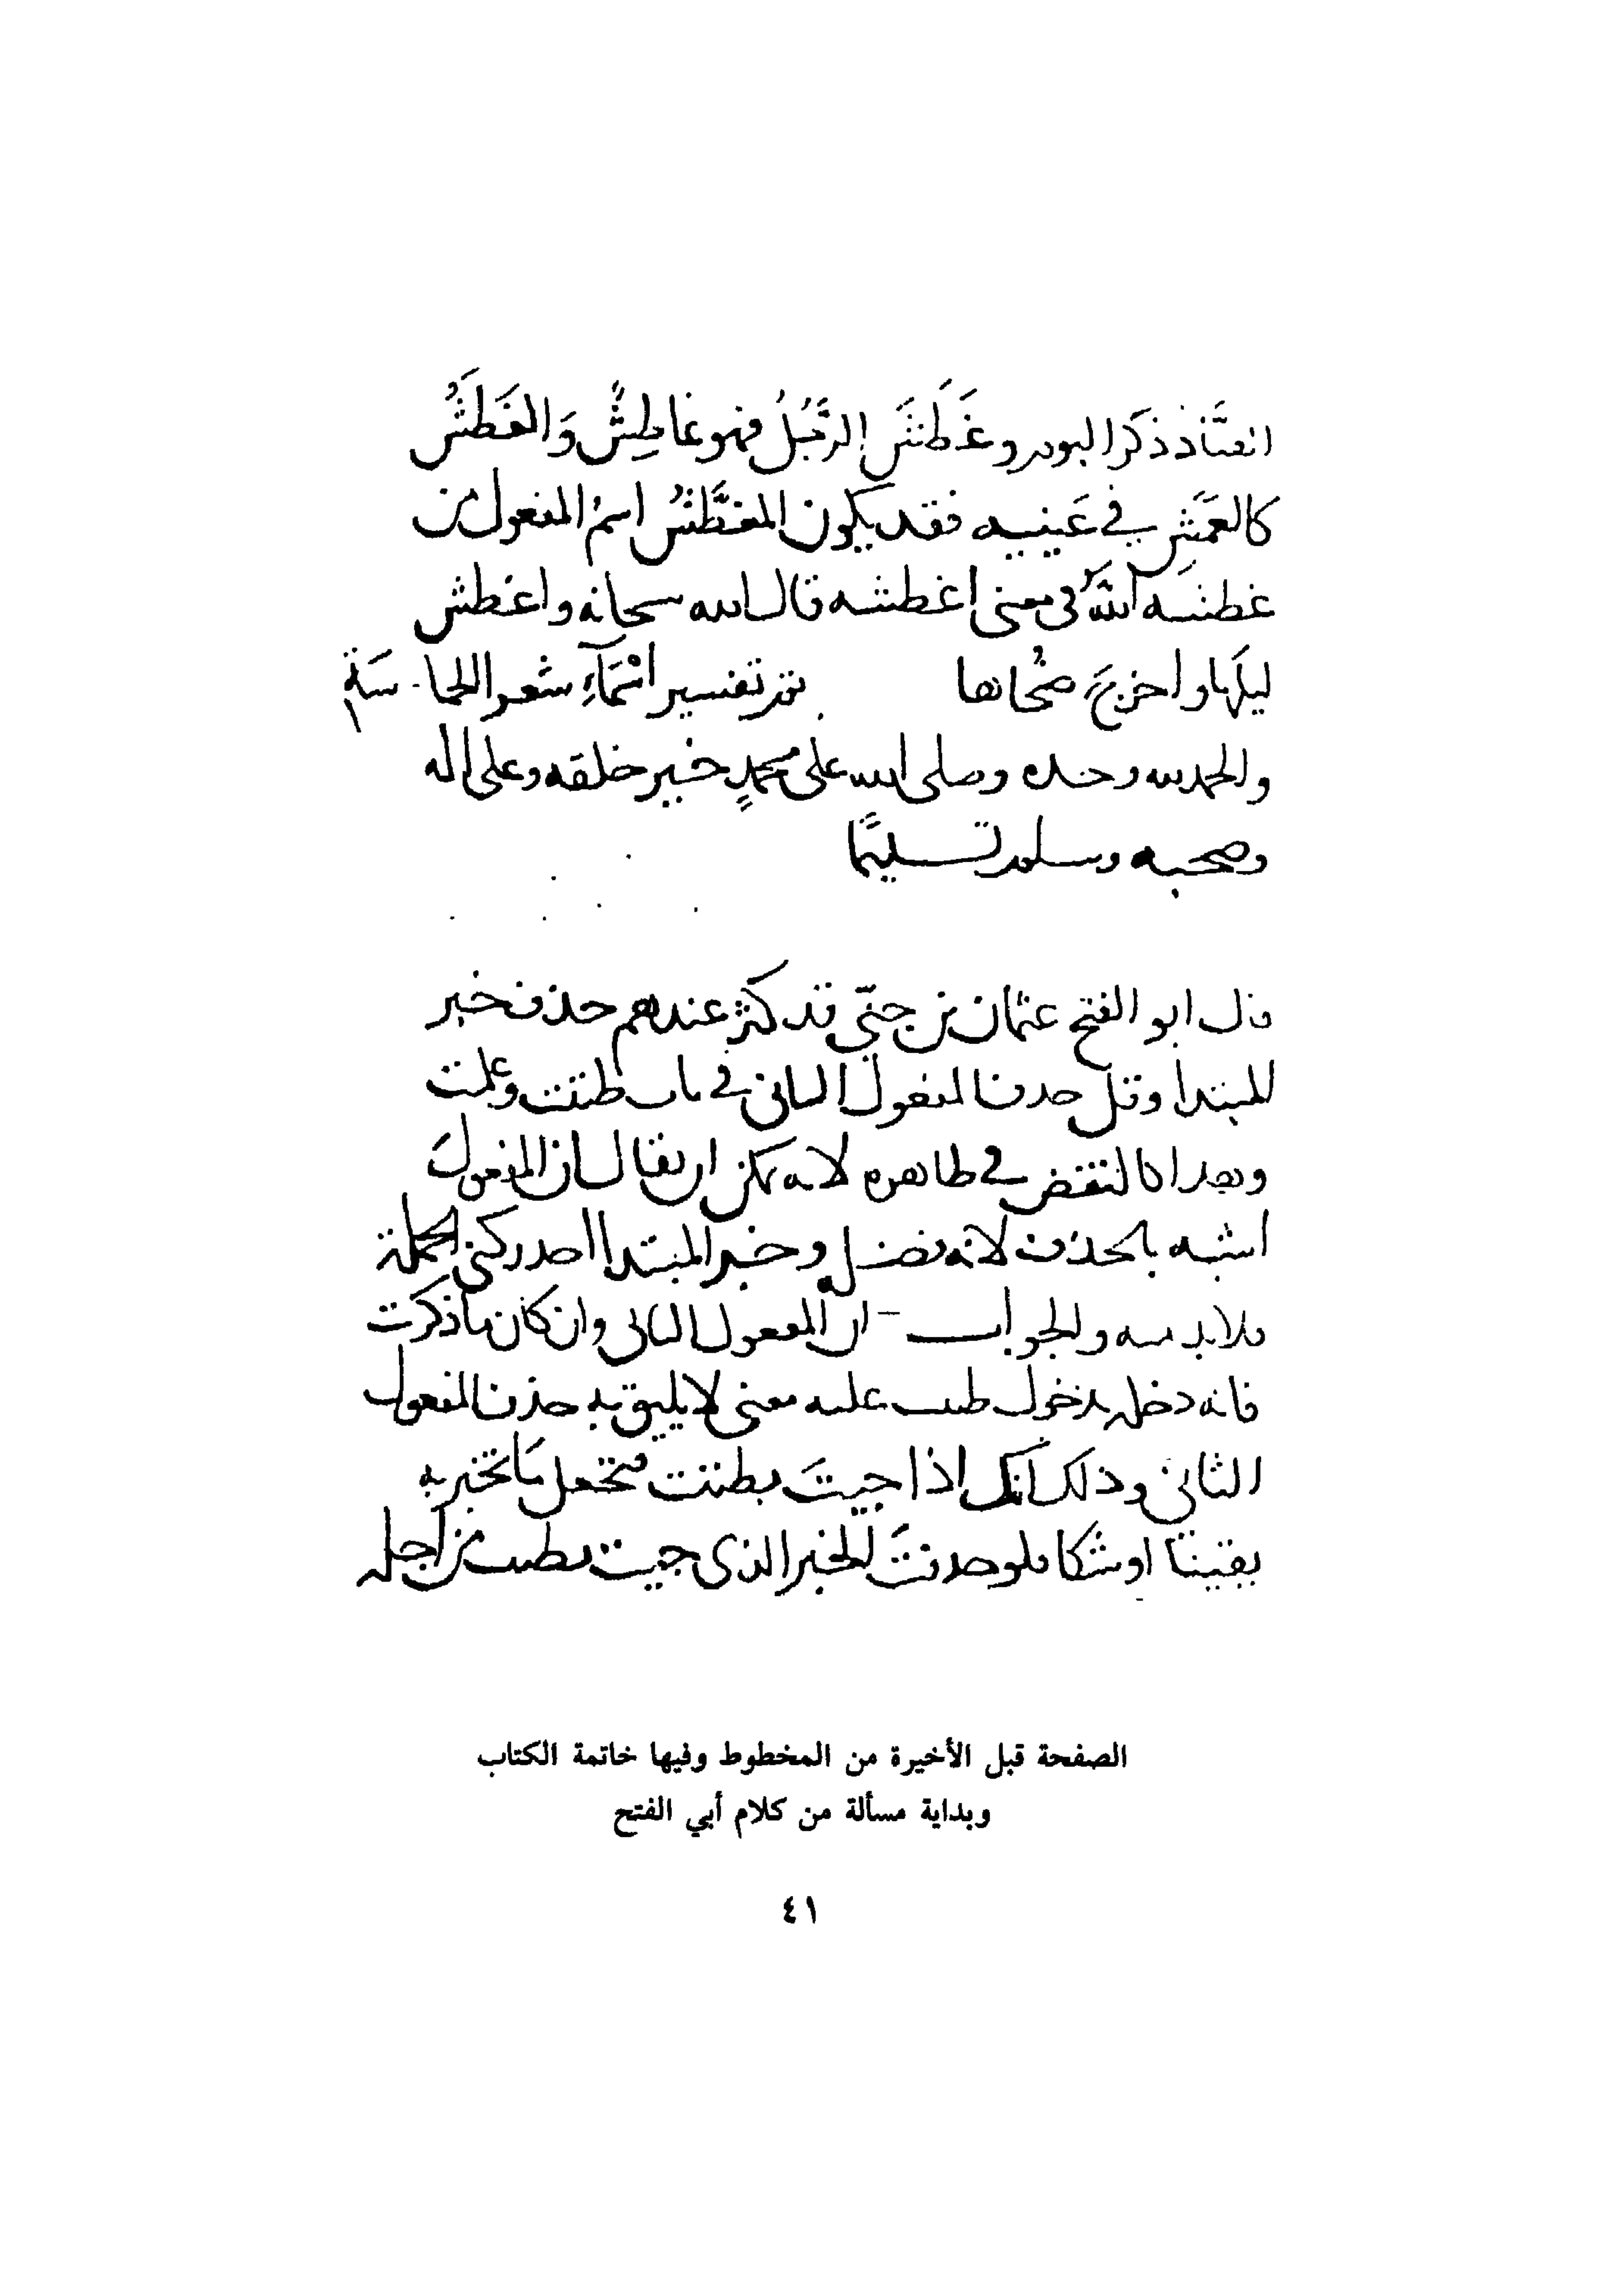 ذكر وغَطَشَ الرَّجُلُ فهو غاطِشٌ وَالغَطَشُ
كالعَمَشِ في عَينيه فقد يكون المغَطَّشُ اسمُ المفعول من
غطشه اللهُ في معنى اغطشه قال الله سبحانه واغطش
ليلَها واخرجَ ضُحاها تم تفسير اسْمَآءِ شعر الحماسَة
والحمد لله وحده وصلى الله على محمدٍ خير خلقه وعلى اله
وصحبه وسلم تسليمًا
قال ابو الفتح عثمان بن جنّي قد كثر عندهم حذف خبر
المبتدا وقل حذف المفعول الثاني في باب ظننت وعلمت
وهذا كالنقض في ظاهره لانه يمكن ان يقال ان المفعولَ
اشبه بالحذف لانه فضل وخبر المبتدا احد ركني الجملة
فلا بد منه والجواب ان المفعول الثاني وان كان ما ذكرت
فانه دخل بدخول ظننت عليه معنى لا يليق به حذف المفعول
الثاني وذلك انك اذا جيتَ بظننت فتجعل مَا تخبر به
يقينًا او شكا فلو حذفتَ الخبر الذي جيت بظننت من اجله
الصفحة قبل الأخيرة من المخطوط وفيها خاتمة الكتاب
وبداية مسألة من كلام أبي الفتح
٤١